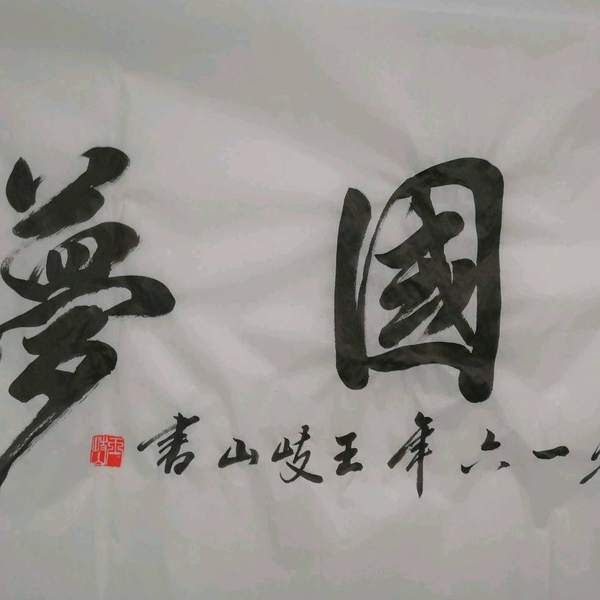 國夢
一六年王岐山書